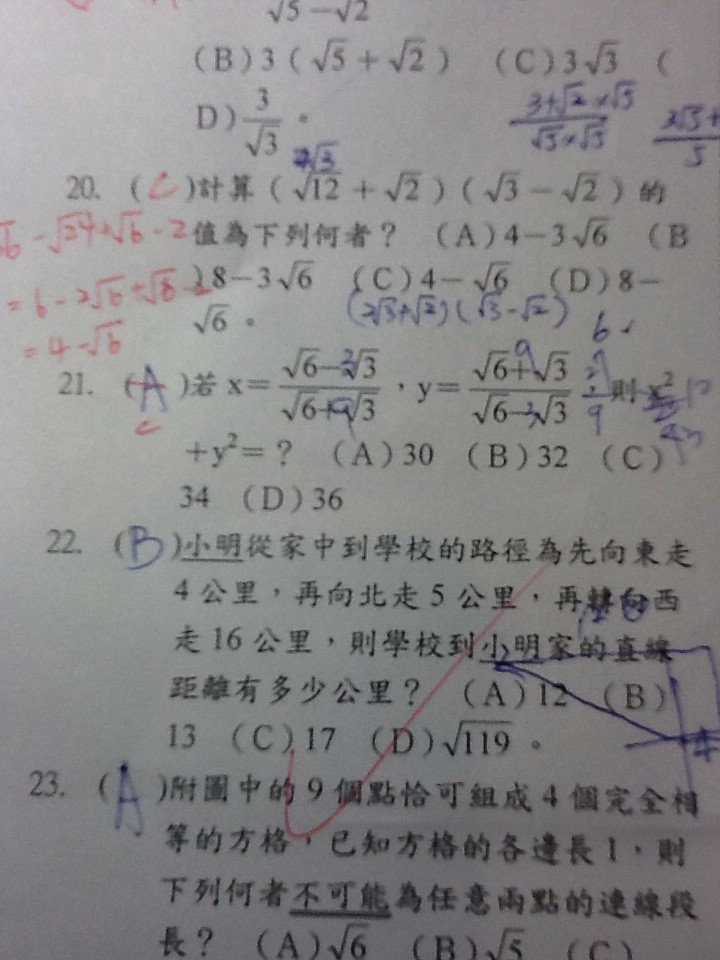 √5－√2
(B) 3 (√5＋√2) (C) 3√3 (
D) 3/√3 。
3+√2×√5 / √5×√5
2√3
20. (C)計算 (√12＋√2) (√3－√2) 的
－√24+√6－2 值為下列何者？ (A) 4－3√6 (B
= 6－2√6+√6
)8－3√6 (C) 4－√6 (D) 8－
√6 。 (2√3+√2)(√3－√2)
= 4－√6
21. (A)若 x＝ √6－√3 / √6＋√3 ，y＝ √6＋√3 / √6－√3 則 x²
C
＋y²＝？ (A) 30 (B) 32 (C)
34 (D) 36
22. (B)小明從家中到學校的路徑為先向東走
4 公里，再向北走 5 公里，再轉向西
走 16 公里，則學校到小明家的直線
距離有多少公里？ (A) 12 (B)
13 (C) 17 (D) √119 。
23. (A)附圖中的 9 個點恰可組成 4 個完全相
等的方格，已知方格的各邊長 1，則
下列何者不可能為任意兩點的連線段
長？ (A) √6 (B) √5 (C)